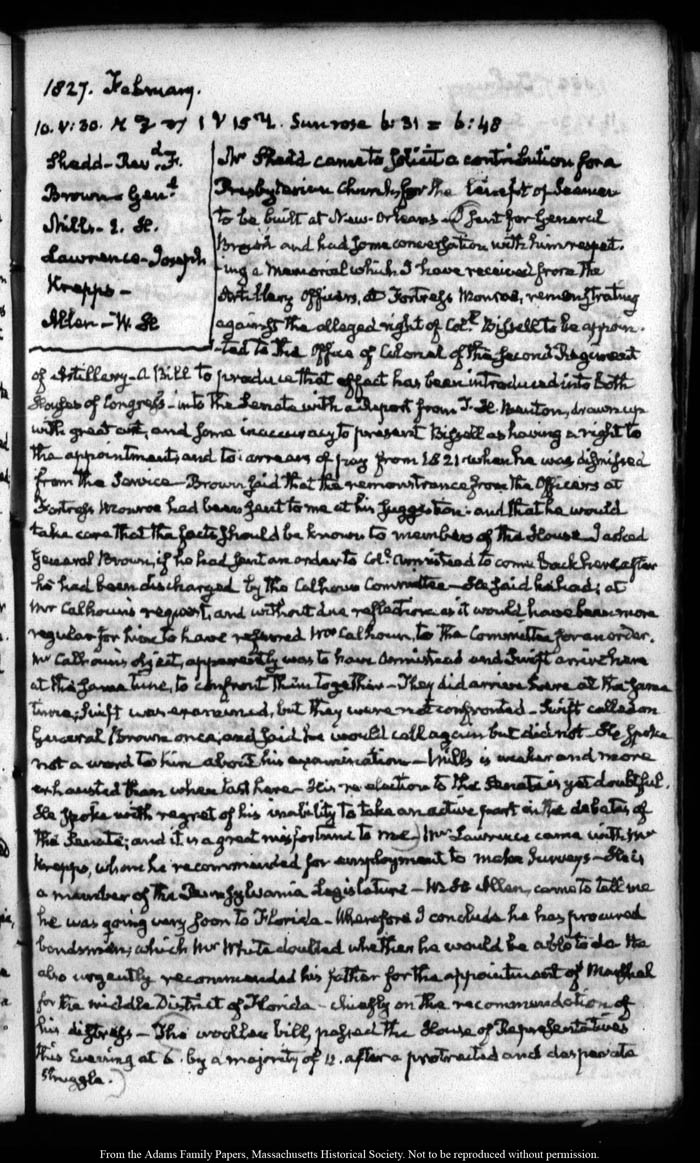 1827. February.
10. V:30. 1 V 15 Sun rose 6:31 = 6:48
Shedd - Revd. F.
Brown - Genl.
Mills - E. H.
Lawrence - Joseph
Krepps -
Allen - W. H
Mr Shedd came to solicit a contribution for a
Presbyterian Church, for the benefit of Seamen
to be built at New-Orleans - I sent for General
Brown and had some conversation with him respect-
-ing a Memorial which I have received from the
Artillery Officers, at Fortress Monroe, remonstrating
against the alleged right of Coll. Bissell to be appoin-
-ted to the Office of Colonel of the second Regiment
of Artillery - A Bill to produce that effect has been introduced into both
Houses of Congress - into the Senate with a Report from T. H. Benton, drawn up
with great art, and some inaccuracy to present Bissell as having a right to
the appointment, and to arrears of pay from 1821 when he was dismissed
from the Service - Brown said that the remonstrance from the Officers at
Fortress Monroe had been sent to me at his suggestion and that he would
take care that the facts should be known to members of the House - I asked
General Brown, if he had sent an order to Coll. Armistead to come back here after
he had been discharged by the Calhoun Committee - He said he had; at
Mr Calhoun's request, and without due reflection as it would have been more
regular for him to have referred Mr Calhoun, to the Committee for an order.
Mr Calhoun's object, apparently was to have Armistead and Swift arrive here
at the same time, to confront them together - They did arrive here at the same
time; Swift was examined, but they were not confronted - Swift called on
General Brown once, and said he would call again but did not - He spoke
not a word to him about his examination - Mills is weaker and more
exhausted than when last here - His re-election to the Senate is yet doubtful.
He spoke with regret of his inability to take an active part in the debates of
the Senate; and it is a great misfortune to me - Mr Lawrence came with Mr
Krepps, whom he recommended for employment to make Surveys - He is
a member of the Pennsylvania Legislature - W. H Allen, came to tell me
he was going very soon to Florida - Wherefore I conclude he has procured
bondsmen, which Mr White doubted whether he would be able to do He
also urgently recommended his father for the appointment of Marshal
for the middle District of Florida - chiefly on the recommendation of
his distress - The woollen bill, passed the House of Representatives
this Evening at 6. by a majority of 12. after a protracted and desperate
struggle.
From the Adams Family Papers, Massachusetts Historical Society. Not to be reproduced without permission.